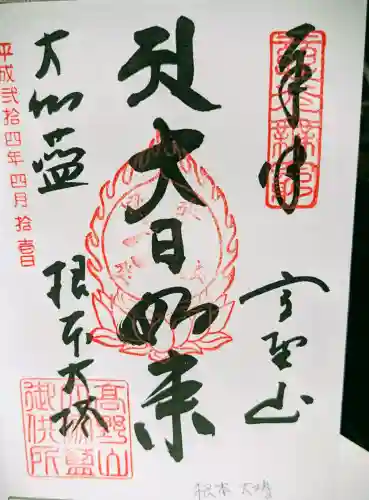 奉拝
高野山
大日如来
大伽藍
根本大塔
平成弐拾四年四月拾壱日
高野山
御供所
根本大塔